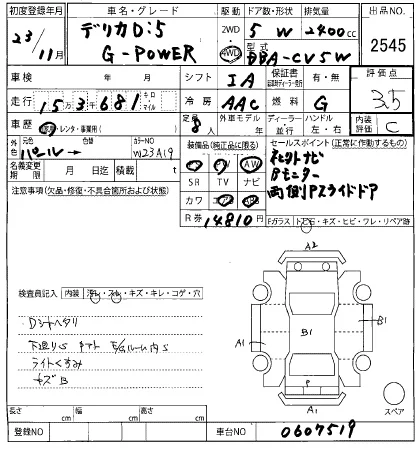 初度登録年月 車名・グレード 駆動 ドア数・形状 排気量 出品NO.
23/11月 デリカD:5 2WD 5 W 2400cc 2545
G-POWER 4WD 型式 DBA-CV5W
車検 年 月 シフト IA 保証書 有・無 評価点
走行 15万3千681 キロ マイル 冷房 AAC 燃料 G 3.5
車歴 レンタ・事業用( ) 定員 8人 外車モデル 年 ディーラー 並行 ハンドル 左・右 内装評価 C
外色 元色 パール 色替 カラーNO W23A19 装備品(純正品に限る) セールスポイント(正常に作動するもの)
名義変更期限 月 日迄 積載 t PW AW 社外ナビ
注意事項(欠品・修復・不具合箇所および状態) SR TV ナビ Bモニター
カワ 両側Pスライドドア
R券 14810円 Fガラス トビ石・キズ・ヒビ・ワレ・リペア跡
A2
検査員記入 内装 汚レ・スレ・キズ・キレ・コゲ・穴
Dシートヘタリ B1 B1
下廻りS A1
ライトくすみ
キズB P
A1 スペア
長さ cm 幅 cm 高さ cm
登録NO 車台NO 0607519